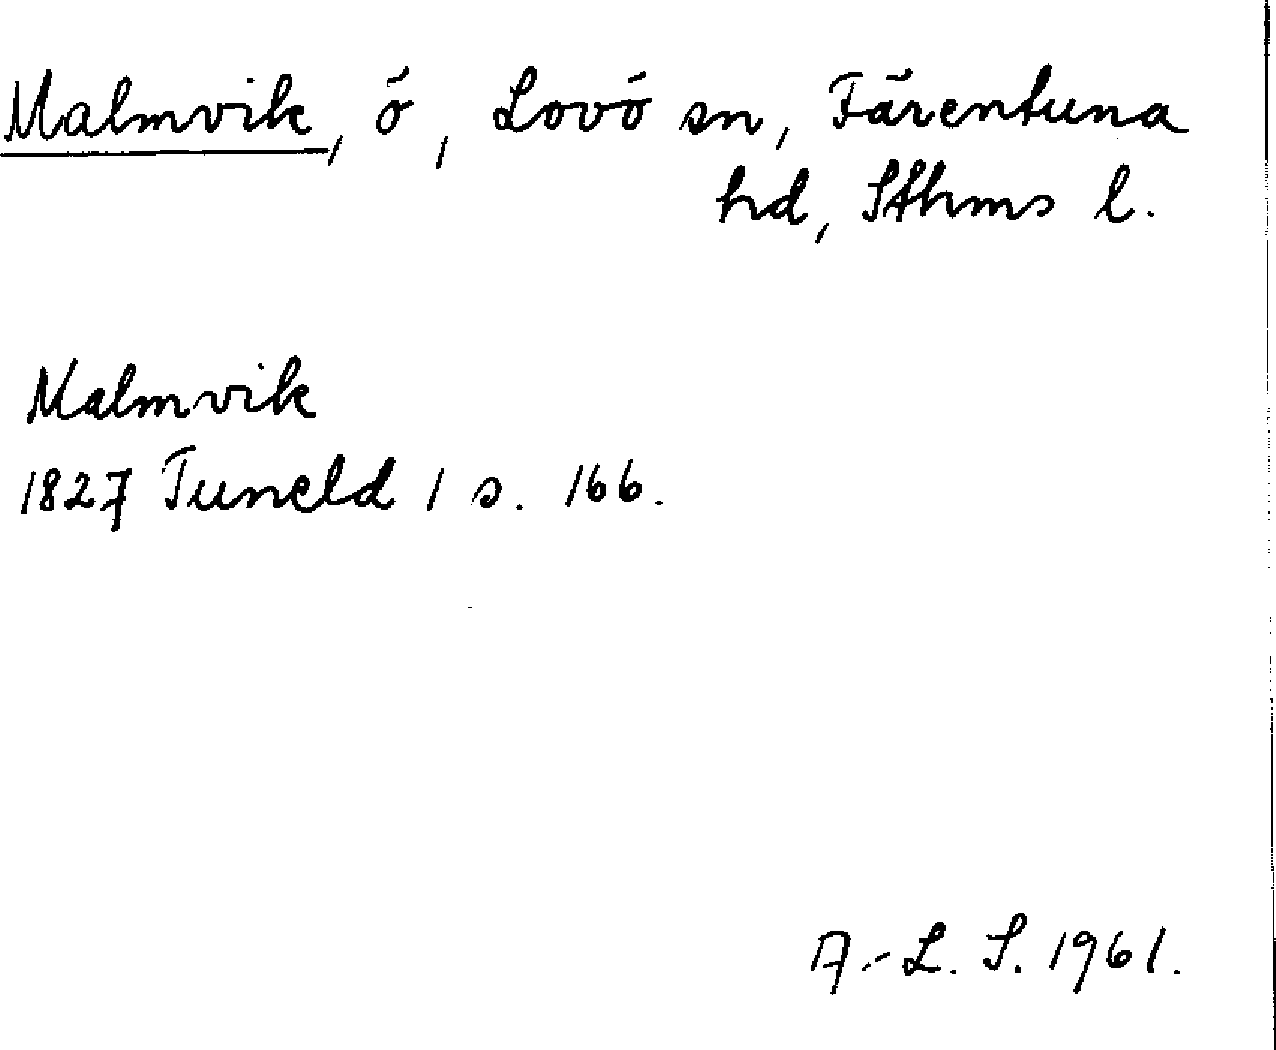 Malmvik, ö, Lovö sn, Färentuna
hd, Sthms l.
Malmvik
1827 Tuneld 1 s. 166.
A.-L. S. 1961.